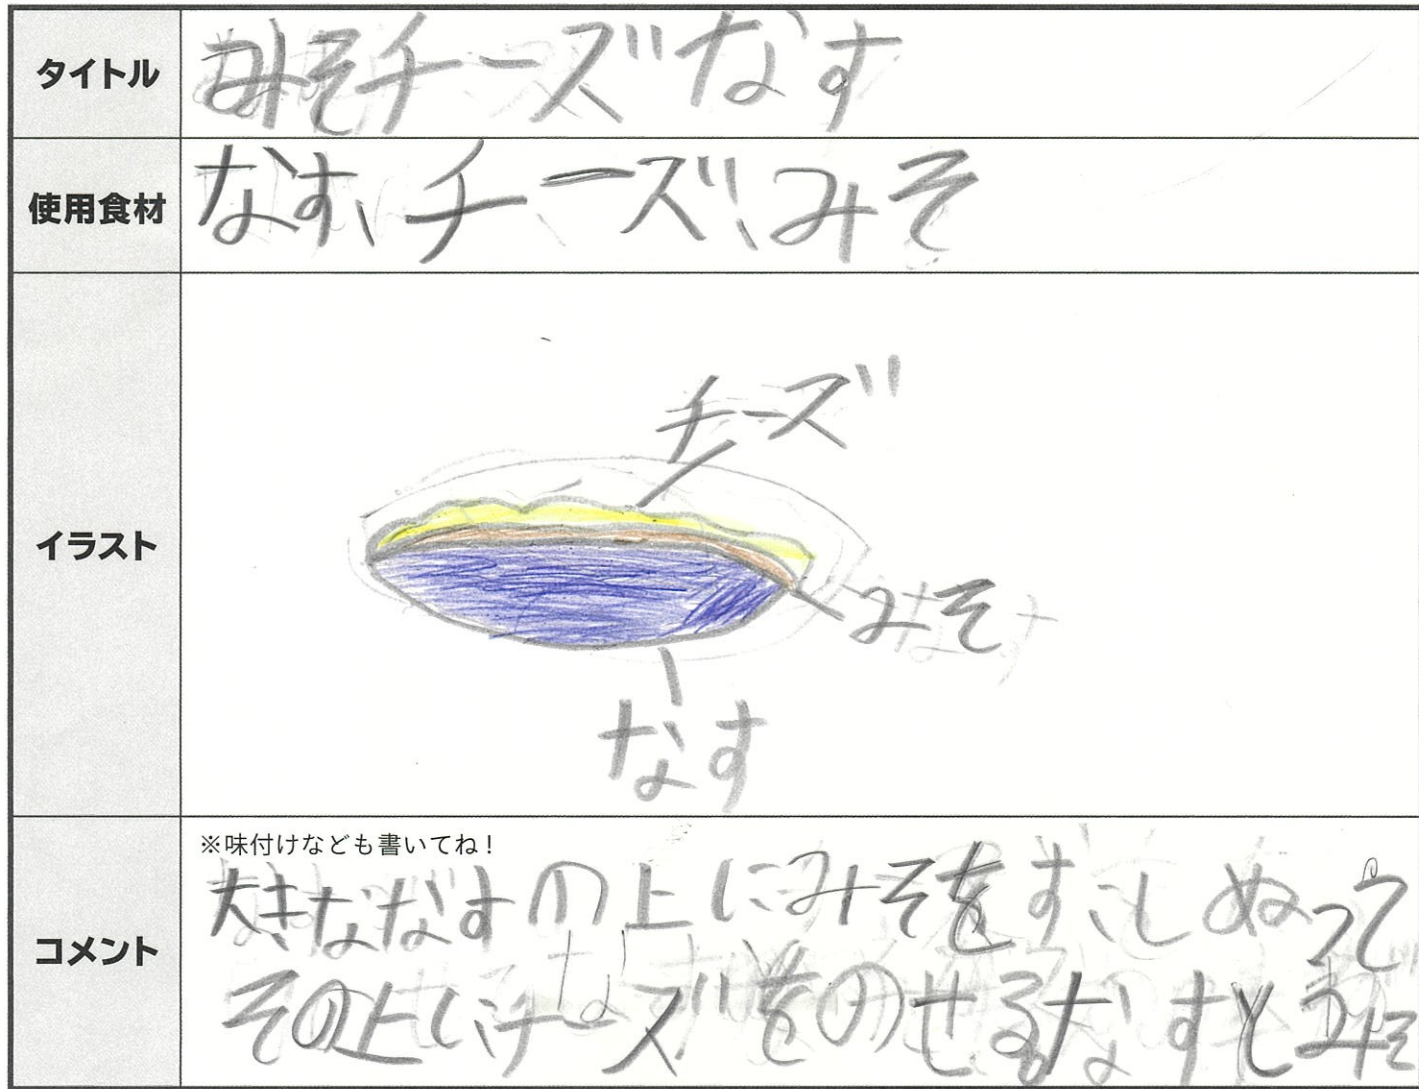 タイトル
みそチーズなす
使用食材
なす、チーズ、みそ
イラスト
チーズ
みそ
なす
コメント
※味付けなども書いてね!
大きななすの上にみそをすこしぬって
その上にチーズをのせるなすとみそ